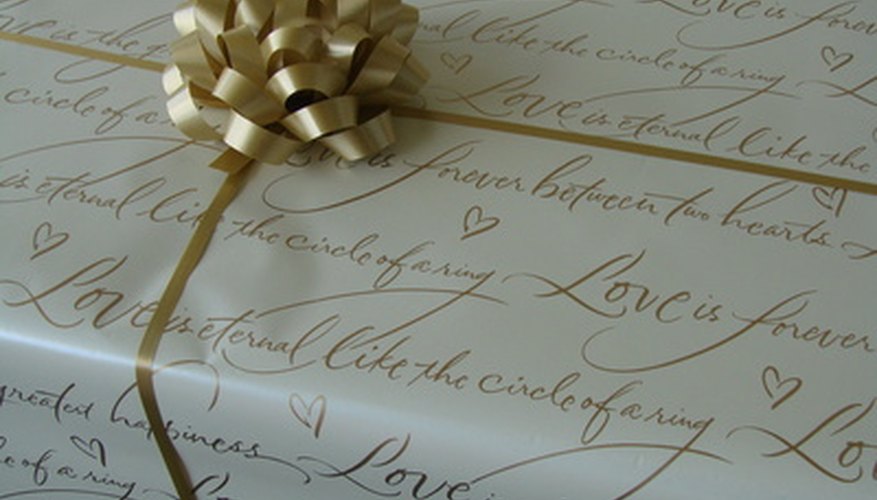 Love is forever
eternal like the circle of a ring
is the
Love is eternal like the
circle of a
is forever between two hearts
is eternal like the circle of a ring
Love is forever
Love is eternal like the circle of a ring
greatest happiness
Love
of a ring